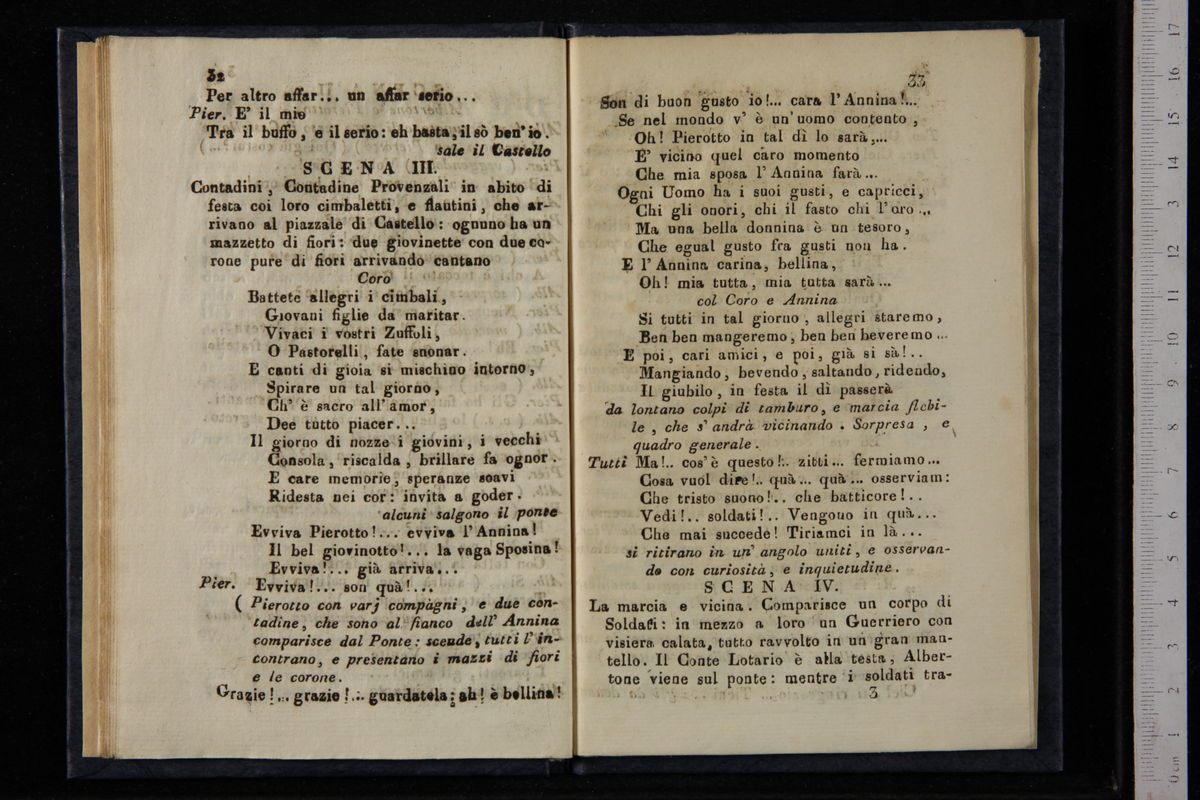 32
Per altro affar... un affar serio...
Pier. E' il mio
Tra il buffo, e il serio: eh basta, il sò ben' io.
sale il Castello
SCENA III.
Contadini, Contadine Provenzali in abito di
festa coi loro cimbaletti, e flautini, che ar-
rivano al piazzale di Castello: ognuno ha un
mazzetto di fiori: due giovinette con due co-
rone pure di fiori arrivando cantano
Coro
Battete allegri i cimbali,
Giovani figlie da maritar.
Vivaci i vostri Zuffoli,
O Pastorelli, fate suonar.
E canti di gioia si mischino intorno,
Spirare un tal giorno,
Ch' è sacro all' amor,
Dee tutto piacer...
Il giorno di nozze i giovini, i vecchi
Consola, riscalda, brillare fa ognor.
E care memorie, speranze soavi
Ridesta nei cor: invita a goder.
alcuni salgono il ponte
Evviva Pierotto!... evviva l' Annina!
Il bel giovinotto!... la vaga Sposina!
Evviva!... già arriva...
Pier. Evviva!... son quà!...
( Pierotto con varj compagni, e due con-
tadine, che sono al fianco dell' Annina
comparisce dal Ponte: scende, tutti l' in-
contrano, e presentano i mazzi di fiori
e le corone.
Grazie!... grazie!... guardatela; ah! è bellina!
33
Son di buon gusto io!... cara l' Annina!...
Se nel mondo v' è un' uomo contento,
Oh! Pierotto in tal dì lo sarà,...
E' vicino quel caro momento
Che mia sposa l' Annina farà...
Ogni Uomo ha i suoi gusti, e capricci,
Chi gli onori, chi il fasto chi l' oro...
Ma una bella donnina è un tesoro,
Che egual gusto fra gusti non ha.
E l' Annina carina, bellina,
Oh! mia tutta, mia tutta sarà...
col Coro e Annina
Si tutti in tal giorno, allegri staremo,
Ben ben mangeremo, ben ben beveremo...
E poi, cari amici, e poi, già si sà!..
Mangiando, bevendo, saltando, ridendo,
Il giubilo, in festa il dì passerà
da lontano colpi di tamburo, e marcia flebi-
le, che s' andrà vicinando. Sorpresa, e
quadro generale.
Tutti Ma!.. cos' è questo!.. zitti... fermiamo...
Cosa vuol dire!.. quà... quà... osserviam:
Che tristo suono!.. che batticore!..
Vedi!.. soldati!.. Vengono in quà...
Che mai succede! Tiriamci in là...
si ritirano in un' angolo uniti, e osservan-
do con curiosità, e inquietudine.
SCENA IV.
La marcia e vicina. Comparisce un corpo di
Soldati: in mezzo a loro un Guerriero con
visiera calata, tutto ravvolto in un gran man-
tello. Il Conte Lotario è alla testa, Alber-
tone viene sul ponte: mentre i soldati tra-
3
0 cm 1 2 3 4 5 6 7 8 9 10 11 12 13 14 15 16 17